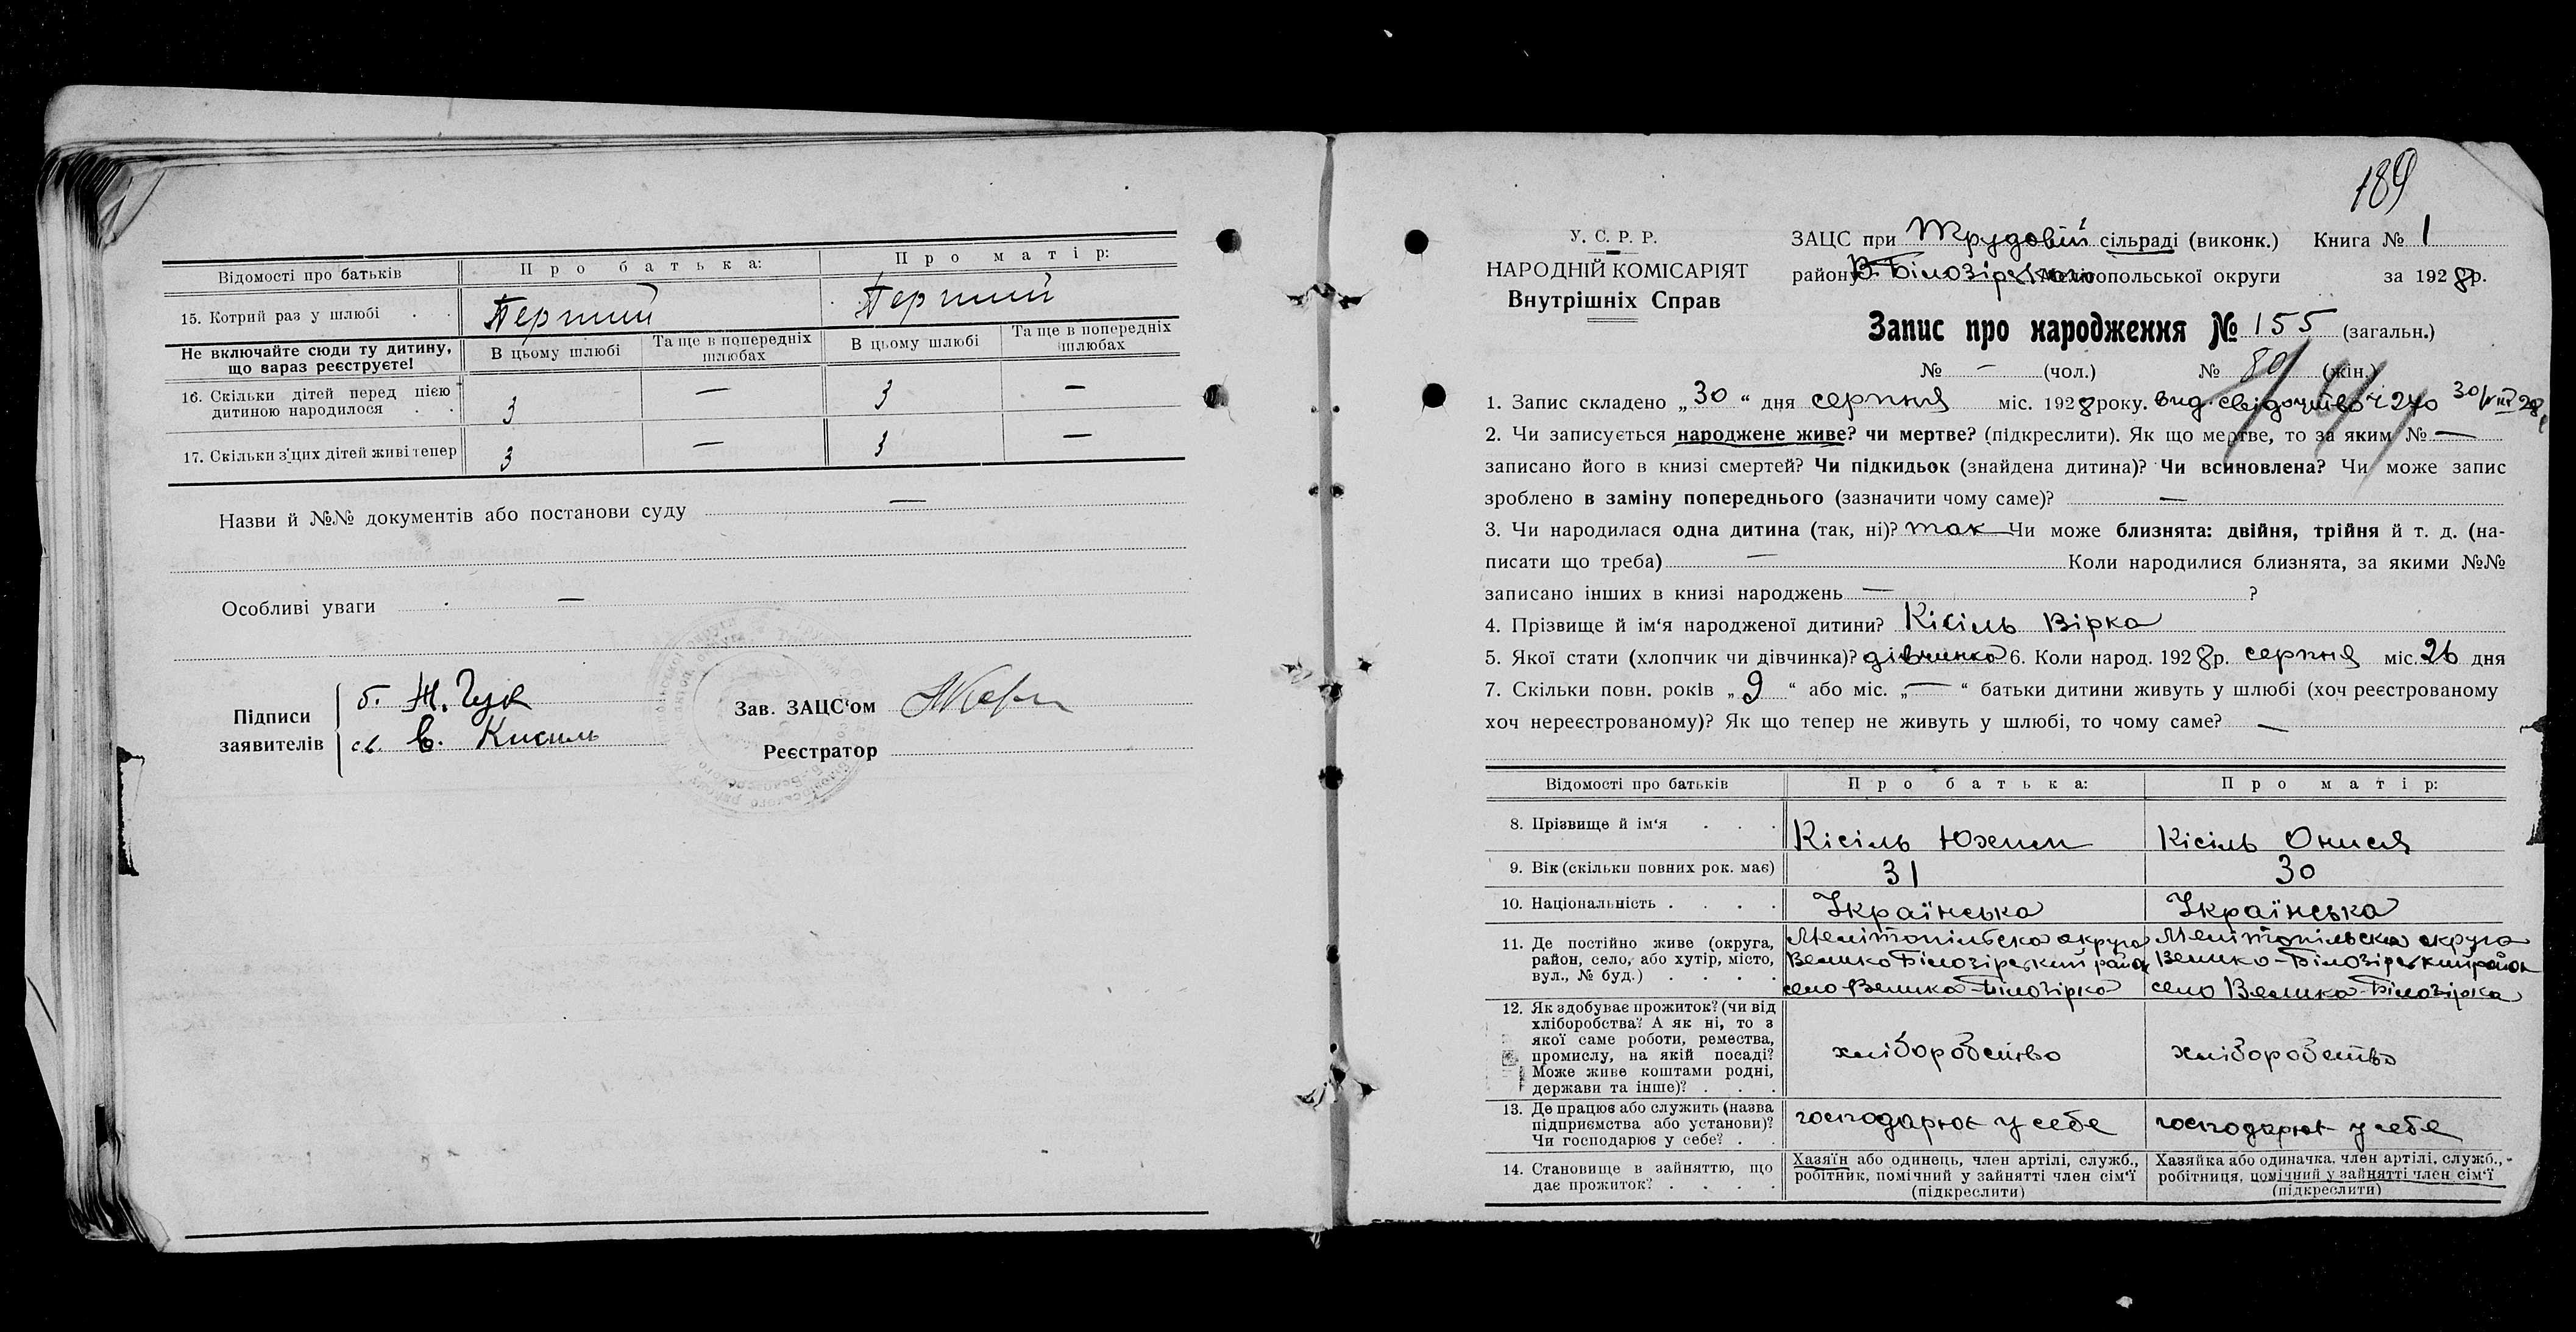 Відомості про батьків Про батька: Про матір:
15. Котрий раз у шлюбі . . Перший Перший
Не включайте сюди ту дитину, що вараз реєструєте! В цьому шлюбі Та ще в попередніх шлюбах В цьому шлюбі Та ще в попередніх шлюбах
16. Скільки дітей перед цією
дитиною народилося . . 3 — 3 —
17. Скільки з'цих дітей живі тепер 3 — 3 —
Назви й №№ документів або постанови суду —
Особливі уваги —
Підписи
заявителів
б. Ж. Гук
св. в. Кисиль
Зав. ЗАЦС'ом
Реєстратор
189
У. С. Р. Р.
НАРОДНІЙ КОМІСАРІЯТ
Внутрішніх Справ
ЗАЦС при Трудовій сільраді (виконк.) Книга № 1
району В-Білозірського Мелітопольської округи за 1928р.
Запис про народження № 155 (загальн.)
№ — (чол.) № 80 (жін.)
1. Запис складено „30“ дня серпня міс. 1928року. вид. свідоцтво ч 270 30/VIII 28
2. Чи записується народжене живе? чи мертве? (підкреслити). Як що мертве, то за яким № —
записано його в книзі смертей? Чи підкидьок (знайдена дитина)? Чи всиновлена? Чи може запис
зроблено в заміну попереднього (зазначити чому саме)? —
3. Чи народилася одна дитина (так, ні)? так Чи може близнята: двійня, трійня й т. д. (на-
писати що треба) — Коли народилися близнята, за якими №№
записано інших в книзі народжень — ?
4. Прізвище й ім'я народженої дитини? Кісіль Вірка
5. Якої стати (хлопчик чи дівчинка)? дівчинка 6. Коли народ. 1928р. серпня міс. 26 дня
7. Скільки повн. років „9“ або міс. „—“ батьки дитини живуть у шлюбі (хоч реєстрованому
хоч нереєстрованому)? Як що тепер не живуть у шлюбі, то чому саме? —
Відомості про батьків Про батька: Про матір:
8. Прізвище й ім'я . . . Кісіль Юхим Кісіль Онися
9. Вік (скільки повних рок. має) 31 30
10. Національність . . . . Українська Українська
11. Де постійно живе (округа,
район, село, або хутір, місто,
вул., № буд.) . . . .
Мелітопільска округа
Велико Білозірський район
село Велика-Білозірка
Мелітопільска округа
Велико-Білозірський район
село Велика-Білозірка
12. Як здобуває прожиток? (чи від
хліборобства? А як ні, то з
якої саме роботи, ремества,
промислу, на якій посаді?
Може живе коштами родні,
держави та інше)? . . .
хліборобство хліборобство
13. Де працює або служить (назва
підприємства або установи)?
Чи господарює у себе? . .
господарює у себе господарює у себе
14. Становище в зайняттю, що
дає прожиток? . . . .
Хазяїн або одинець, член артілі, служб.,
робітник, помічний у зайнятті член сім'ї
(підкреслити)
Хазяйка або одиначка, член артілі, служб.,
робітниця, помічний у зайнятті член сім'ї
(підкреслити)